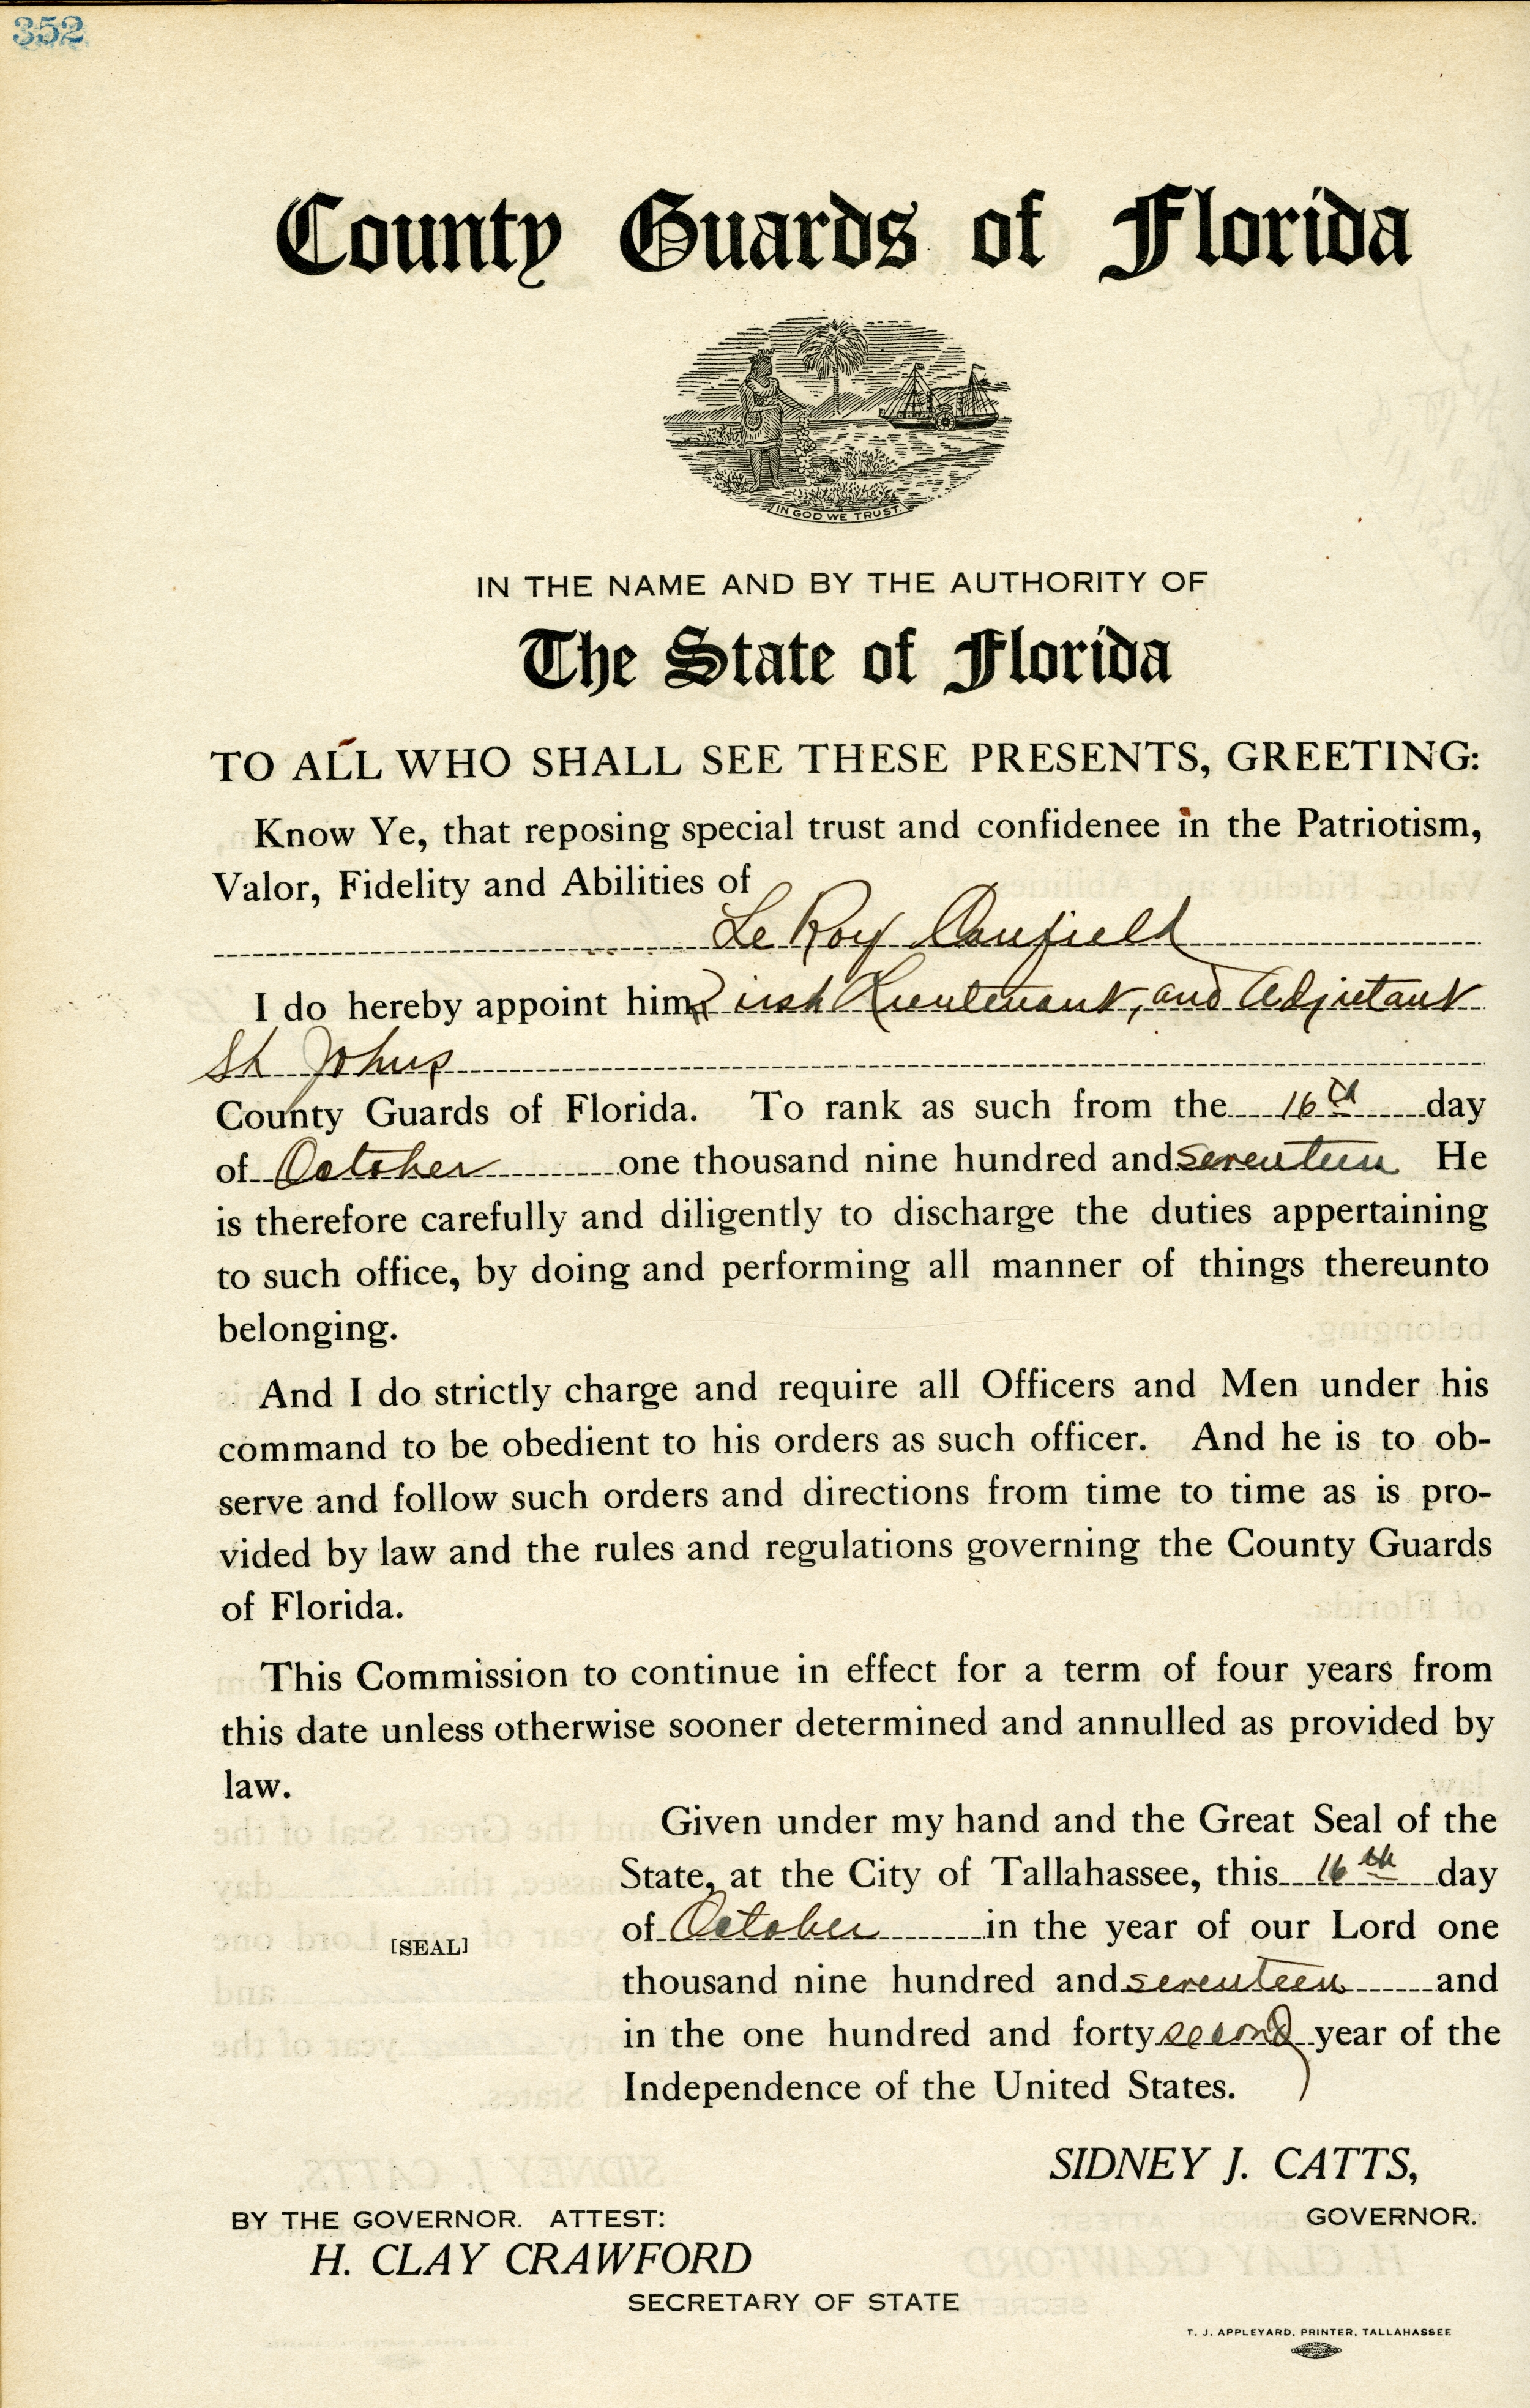 352
County Guards of Florida
IN GOD WE TRUST.
IN THE NAME AND BY THE AUTHORITY OF
The State of Florida
TO ALL WHO SHALL SEE THESE PRESENTS, GREETING:
Know Ye, that reposing special trust and confidenee in the Patriotism,
Valor, Fidelity and Abilities of
Le Roy Canfield
I do hereby appoint him First Lieutenant, and Adjutant
St Johns
County Guards of Florida. To rank as such from the 16th day
of October one thousand nine hundred and seventeen He
is therefore carefully and diligently to discharge the duties appertaining
to such office, by doing and performing all manner of things thereunto
belonging.
And I do strictly charge and require all Officers and Men under his
command to be obedient to his orders as such officer. And he is to ob-
serve and follow such orders and directions from time to time as is pro-
vided by law and the rules and regulations governing the County Guards
of Florida.
This Commission to continue in effect for a term of four years from
this date unless otherwise sooner determined and annulled as provided by
law.
Given under my hand and the Great Seal of the
State, at the City of Tallahassee, this 16th day
of October in the year of our Lord one
[SEAL]
thousand nine hundred and seventeen and
in the one hundred and forty second year of the
Independence of the United States.
SIDNEY J. CATTS,
GOVERNOR.
BY THE GOVERNOR. ATTEST:
H. CLAY CRAWFORD
SECRETARY OF STATE
T. J. APPLEYARD, PRINTER, TALLAHASSEE